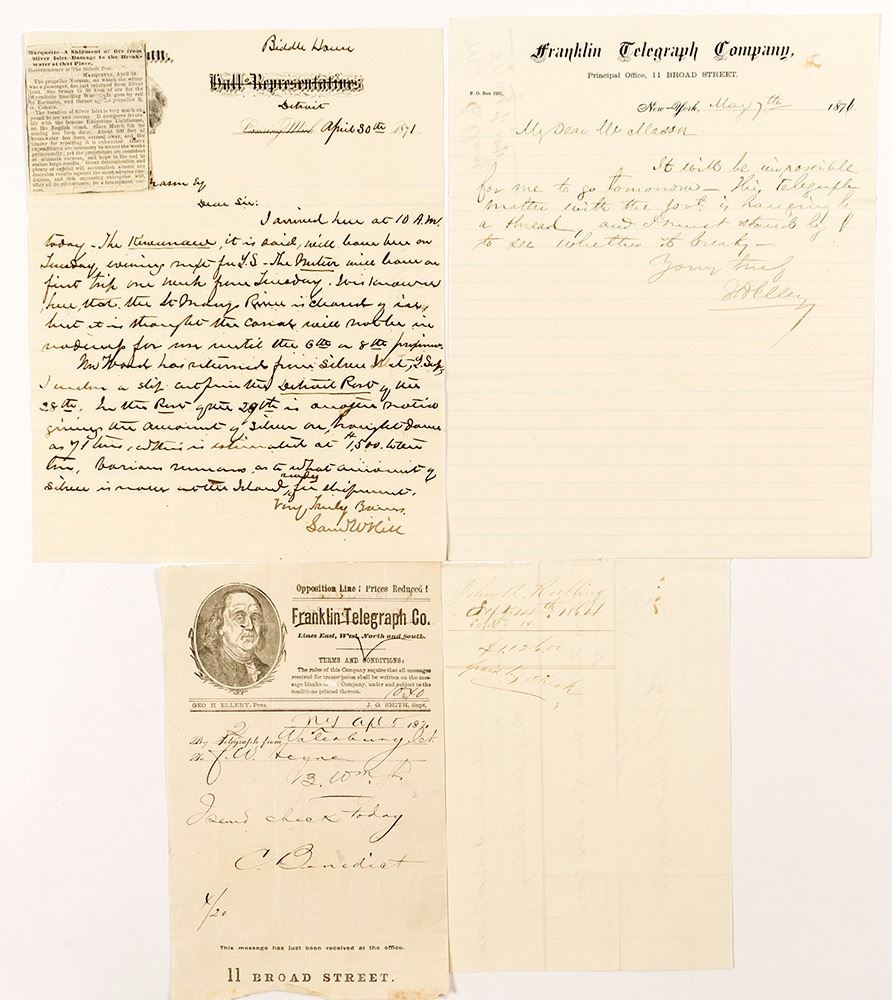 Marquette—A Shipment of Ore from
Silver Islet—Damage to the Break-
water at that Place.
Correspondence of The Detroit Post.
MARQUETTE, April 24.
The propeller Norman, on which the writer
was a passenger, has just returned from Silver
Islet. She brings tons of ore for the
Wyandotte Smelting Works. It goes by rail
to Escanaba, and thence by propeller E.
G. Coburn.
The location of Silver Islet is very much ex-
posed to sea and storms. It compares favora-
bly with the famous Eddystone Lighthouse
on the English coast. Since March 7th no
mining has been done. About 500 feet of
breakwater has been swept away, and the
timber for repairing it is exhausted. Heavy
expenditures are necessary to secure the works
permanently; yet the proprietors are confident
of ultimate success, and hope in the end to
realize large results. Great determination and
plenty of capital will accomplish almost any
desirable results against the most adverse con-
ditions, and this unceasing enterprise will,
after all its misfortunes, be a triumphant suc-
cess.
Biddle House
Hall of Representatives
Detroit
Lansing, Mich. April 30th 1871.
Mason Esq
Dear Sir:
I arrived here at 10 A.M.
today - The Keweenaw, it is said, will leave here on
Tuesday evening next for L.S - The Meteor will leave on
first trip one week from Tuesday. It is known
here, that the St Marys River is cleared of ice,
but it is thought the canal will not be in
readiness for use until the 6th or 8th proximo.
Mr Ward has returned from Silver Islet, L Sup,
I enclose a slip cut from the Detroit Post of the
28th. In the Post of the 29th is another notice
giving the amount of silver ore, brought down
as 71 tons, & this is estimated at $1,500. to the
ton, Various rumors as to what amount of
silver is now at the Island, ready for shipment.
Very Truly Yours
Sam W Hill
Franklin Telegraph Company,
Principal Office, 11 BROAD STREET.
P. O. Box
New-York, May 7th 1871
My Dear Mr Mason
It will be impossible
for me to go tomorrow - This Telegraph
matter with the Govt. is hanging by
a thread, and I must stand by
to see whether it breaks -
Yours truly
Opposition Line! Prices Reduced!
Franklin Telegraph Co.
Lines East, West, North and South.
TERMS AND CONDITIONS:
The rules of this Company require that all messages
received for transmission shall be written on the mes-
sage blanks of the Company, under and subject to the
conditions printed thereon.
1040
GEO H ELLERY, Pres. J. G. SMITH, Supt.
2 NY Apl 5 187
By Telegraph from Waterbury Ct.
To J. W.
13 Wm St
I send check today
C. Benedict
4/20
This message has just been received at the office.
11 BROAD STREET.
John A Roebling
Sept 14th 1864
Sept. 14
$1126.00
paid by check